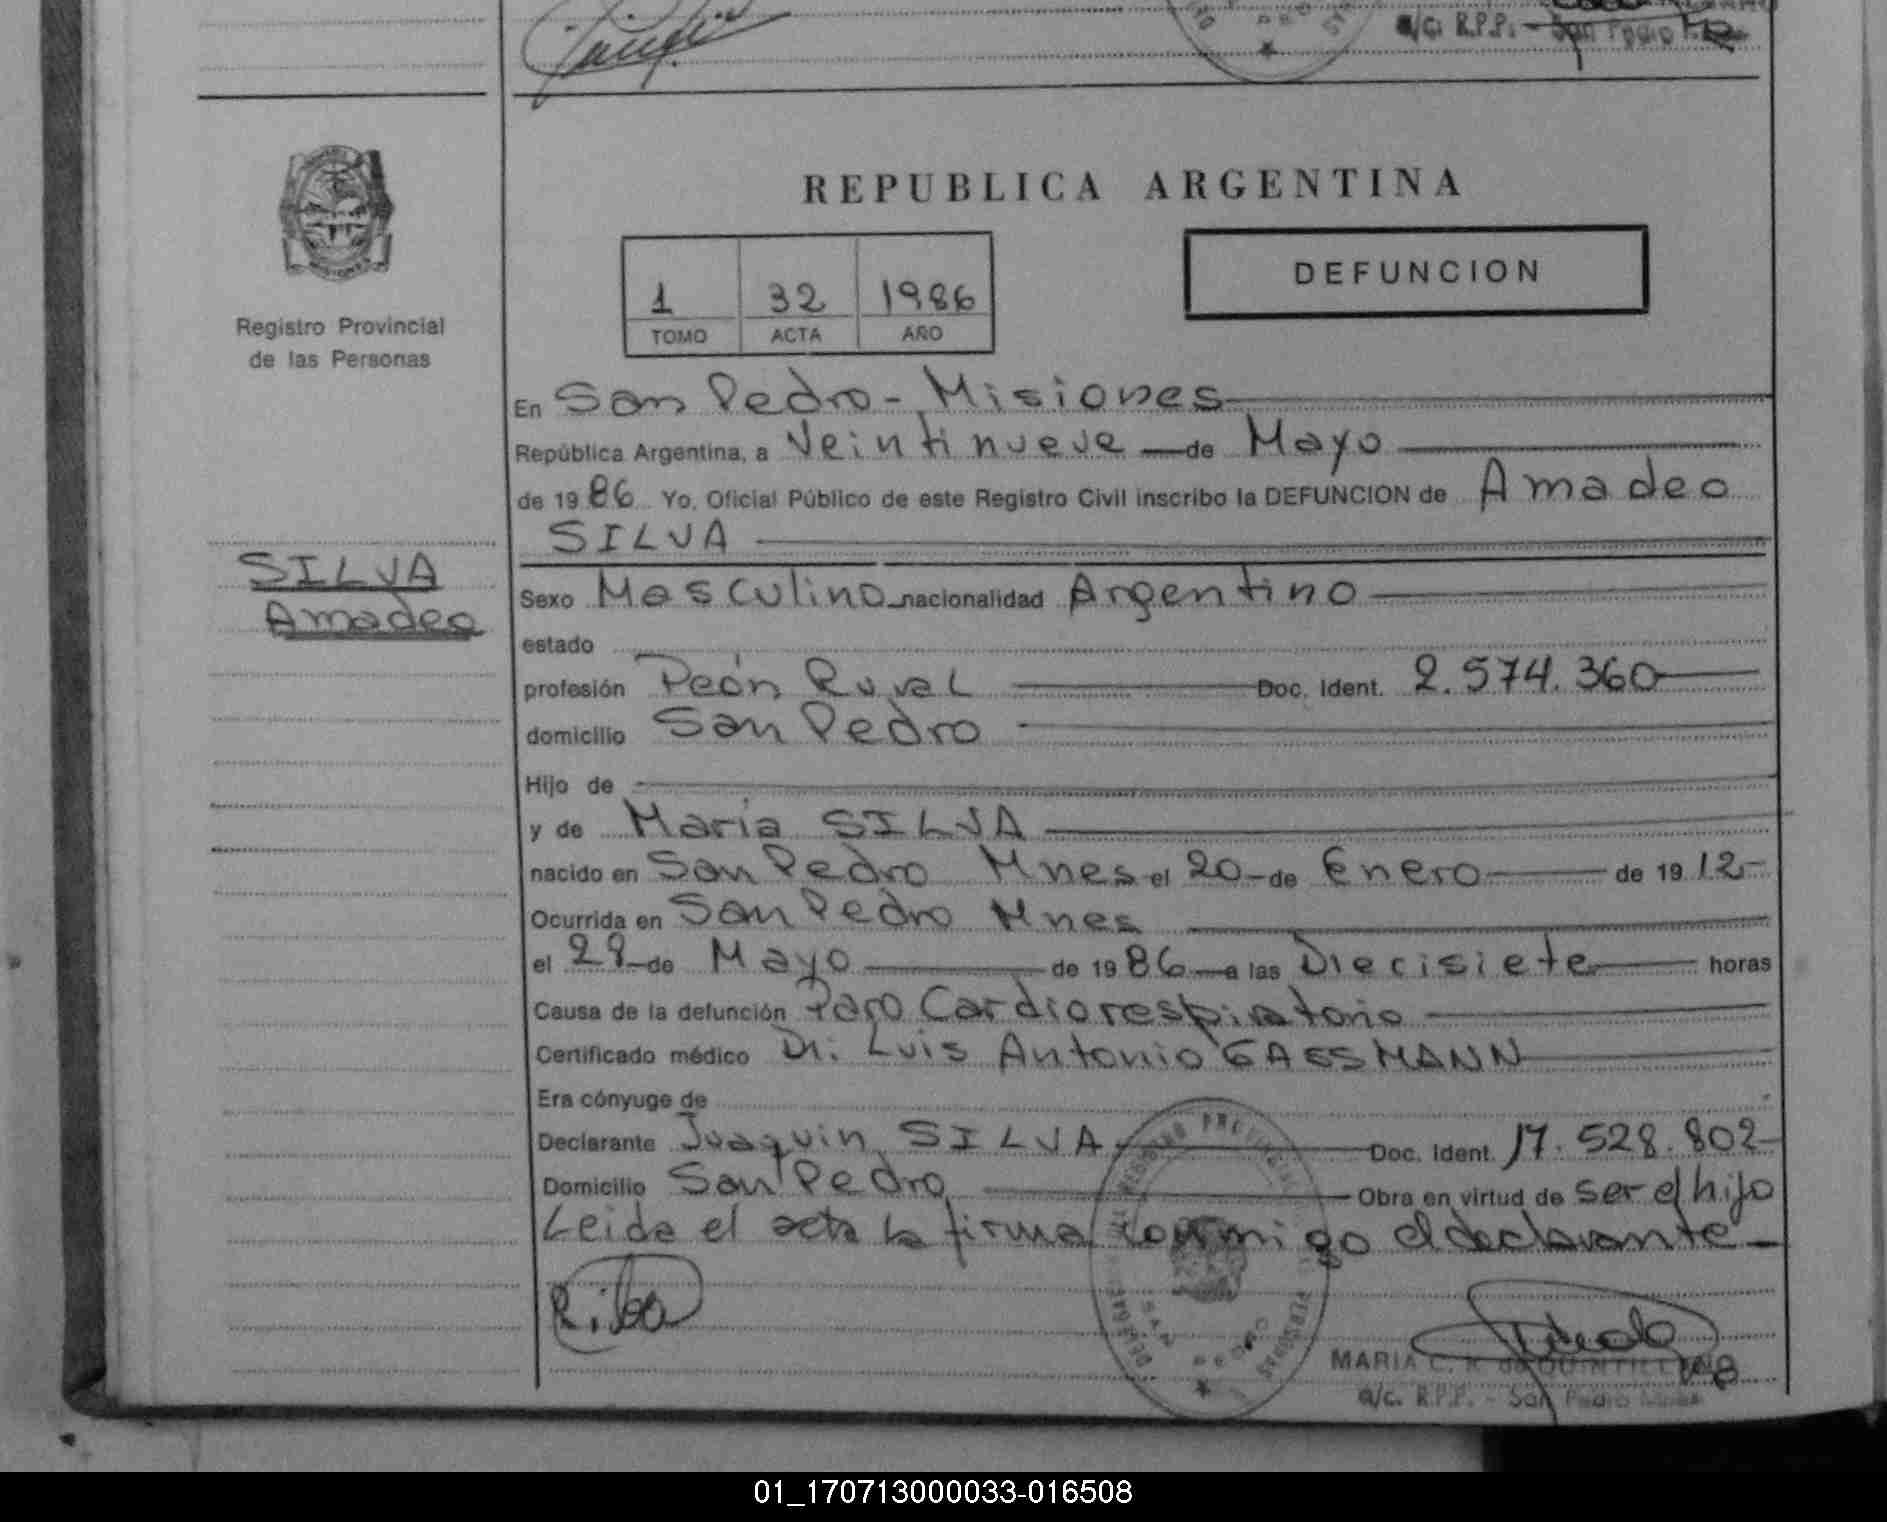 a/c. R.P.P. - San Pedro
REPUBLICA ARGENTINA
1 32 1986
TOMO ACTA AÑO
DEFUNCION
MISIONES
Registro Provincial
de las Personas
En San Pedro - Misiones
República Argentina, a Veintinueve de Mayo
de 1986 Yo, Oficial Público de este Registro Civil inscribo la DEFUNCION de Amadeo
SILVA
SILVA
Amadeo
Sexo Masculino nacionalidad Argentino
estado
profesión Peón Rural Doc. Ident. 2.574.360
domicilio San Pedro
Hijo de
y de María SILVA
nacido en San Pedro Mnes el 20 de Enero de 1912
Ocurrida en San Pedro Mnes
el 28 de Mayo de 1986 a las Diecisiete horas
Causa de la defunción Paro Cardiorespiratorio
Certificado médico Dr. Luis Antonio GAESMANN
Era cónyuge de
Declarante Juaquin SILVA Doc. Ident. 17.528.802
Domicilio San Pedro Obra en virtud de ser el hijo
Leida el acta la firma conmigo el declarante
MARIA C. R. de QUINTILL
a/c. R.P.P. - San Pedro Mnes
01_170713000033-016508